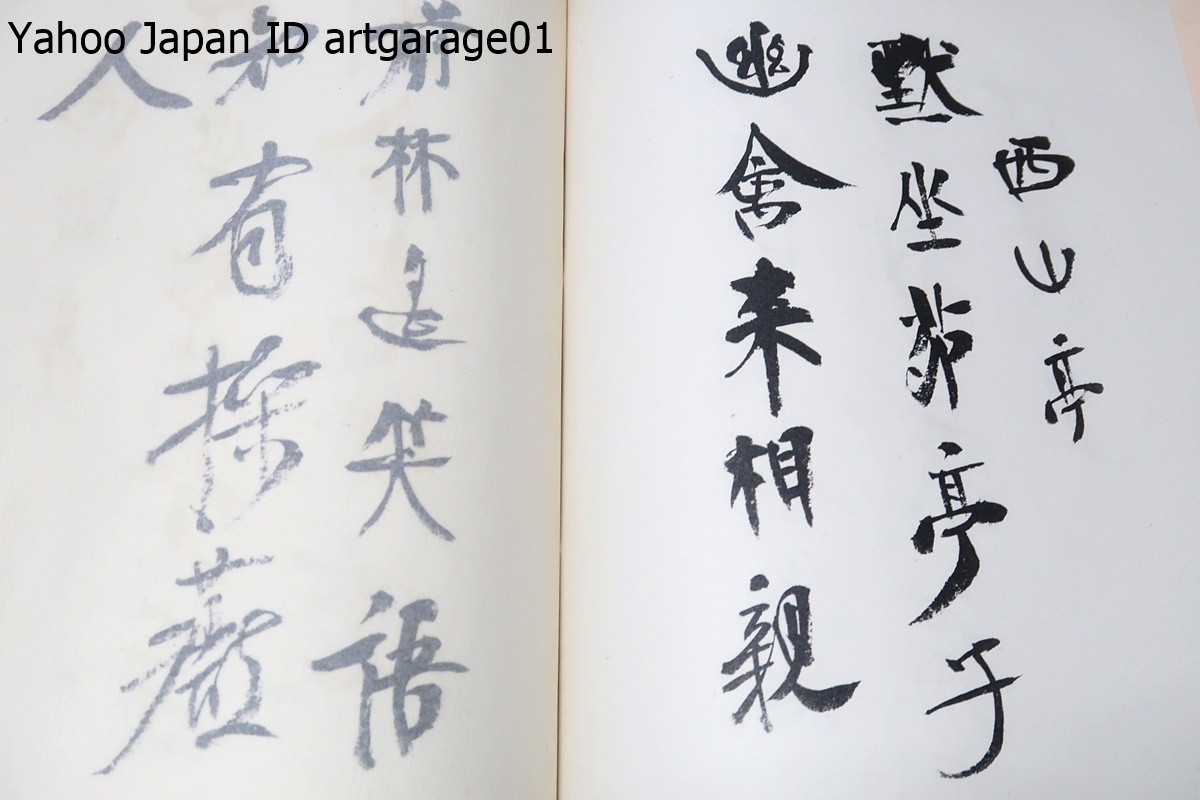 Yahoo Japan ID artgarage01
西山亭
默坐茆亭子
幽禽来相親
前林笑語
知有採
人